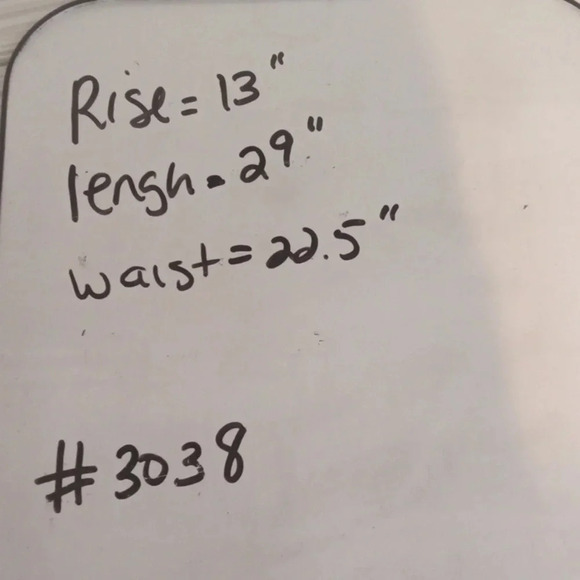 Rise = 13"
lengh = 29"
waist = 22.5"
#3038